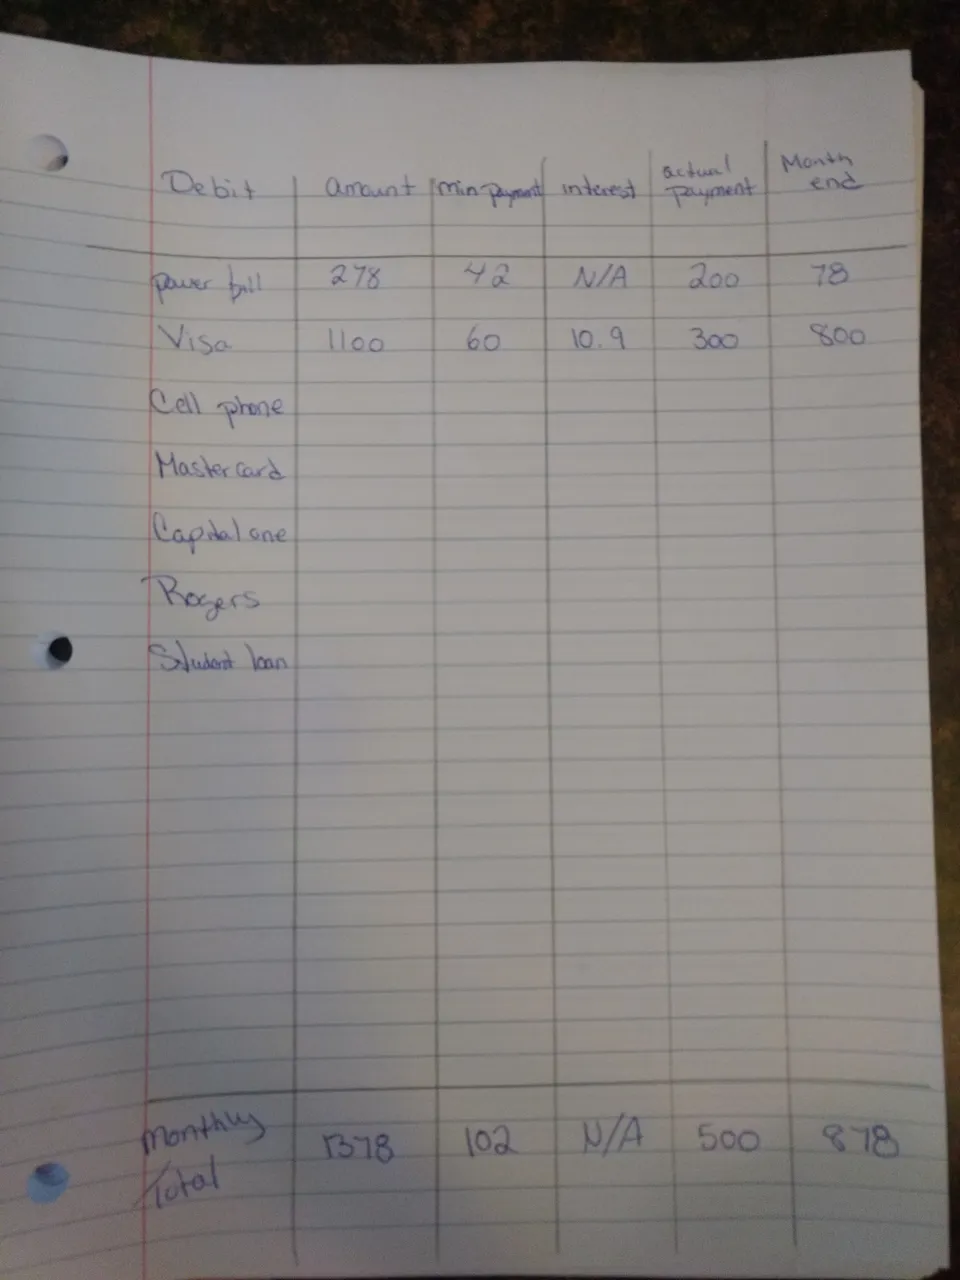 Debit amount min payment interest actual payment Month end
power bill 278 42 N/A 200 78
Visa 1100 60 10.9 300 800
Cell phone
Mastercard
Capital one
Rogers
Student loan
Monthly Total 1378 102 N/A 500 878